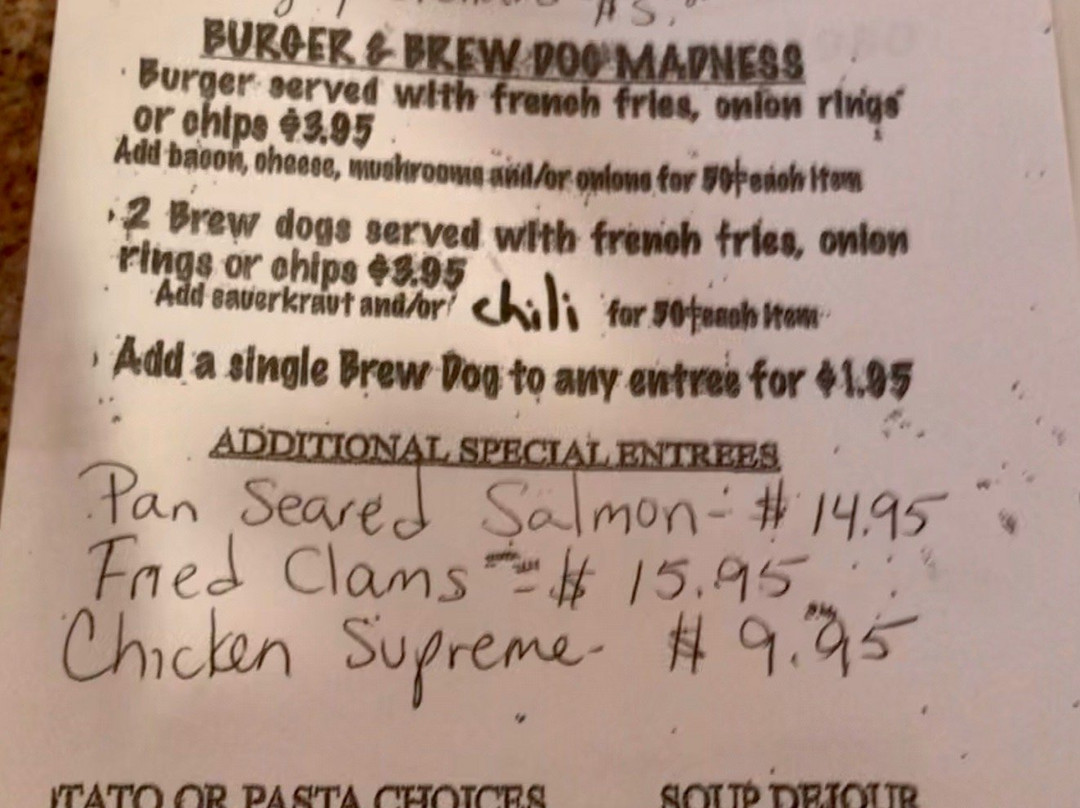 BURGER & BREW DOG MADNESS
· Burger served with french fries, onion rings
or chips $3.95
Add bacon, cheese, mushrooms and/or onions for 50¢ each item
· 2 Brew dogs served with french fries, onion
rings or chips $3.95
Add sauerkraut and/or chili for 50¢ each item
· Add a single Brew Dog to any entree for $1.95
ADDITIONAL SPECIAL ENTREES
Pan Seared Salmon - $ 14.95
Fried Clams - $ 15.95
Chicken Supreme - $ 9.95
TATO OR PASTA CHOICES SOUP DEJOUR